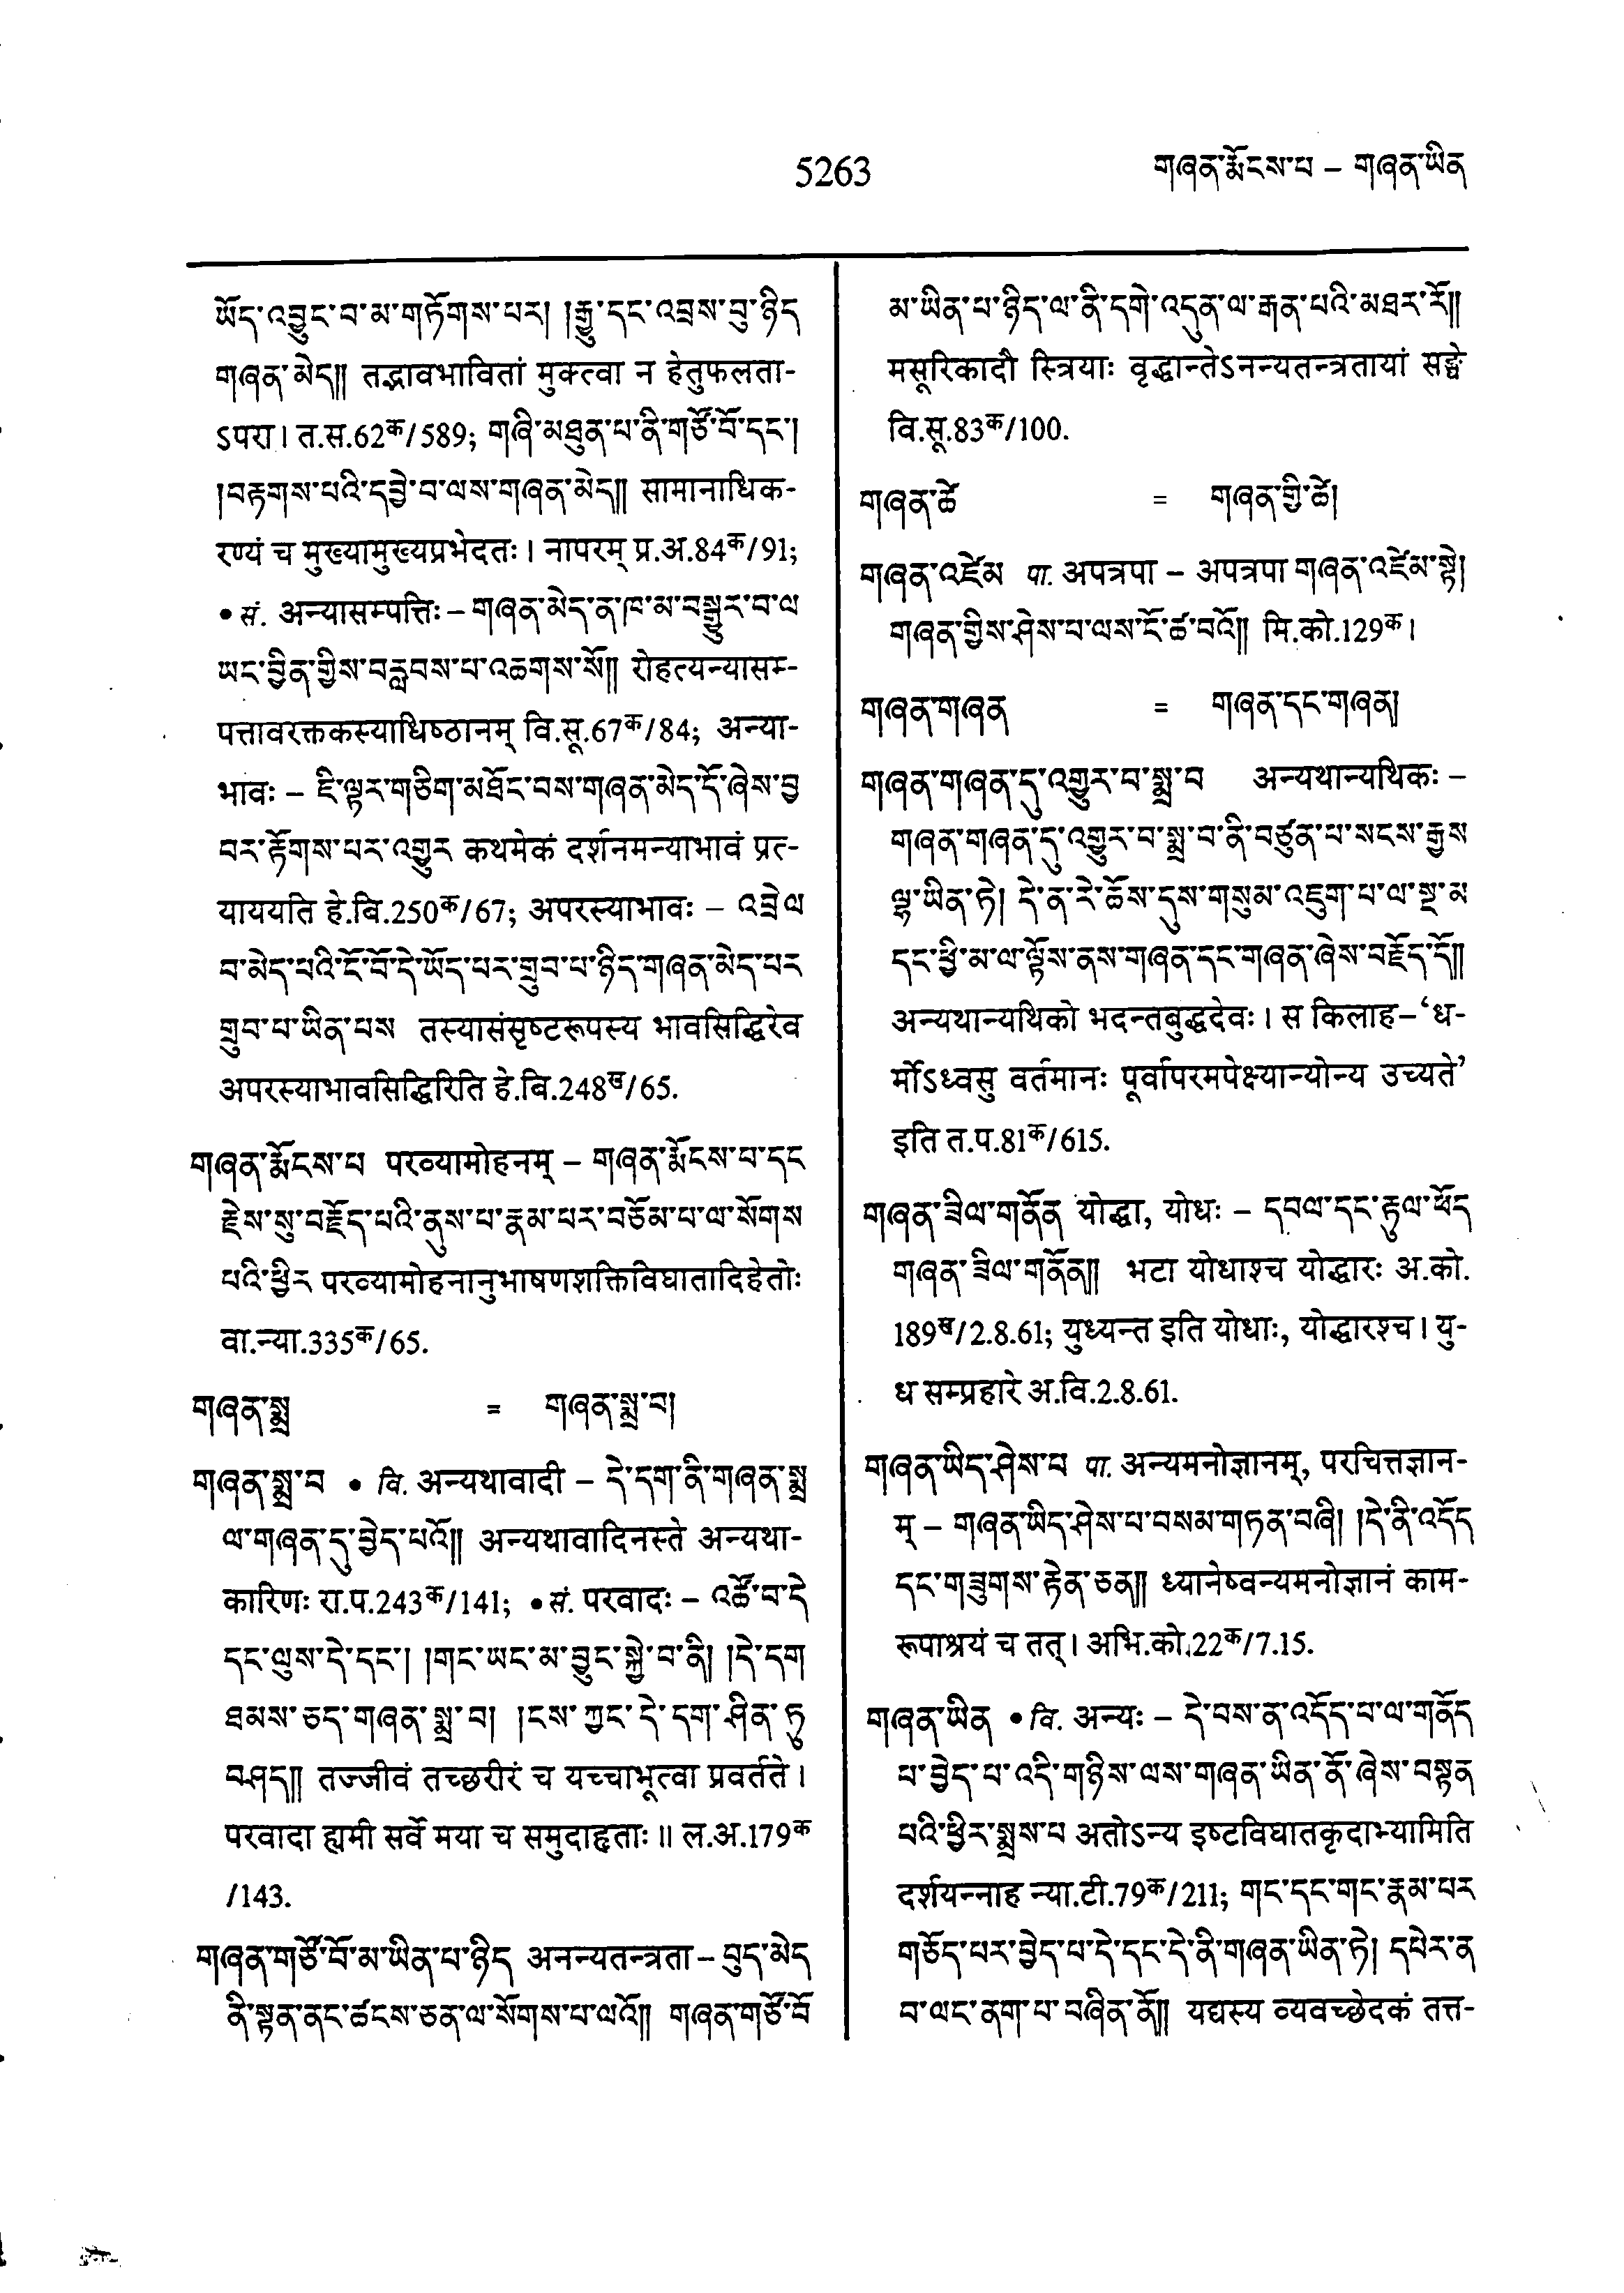 5263
གཞན་རྨོངས་པ – གཞན་ཡིན
ཡོད་འབྱུང་བ་མ་གཏོགས་པར། །རྒྱུ་དང་འབྲས་བུ་ཉིད
གཞན་མེད།། तद्भावभावितां मुक्त्वा न हेतुफलता-
ऽपरा। त.स.62क/589; གཞི་མཐུན་པ་ནི་གཙོ་བོ་དང་།
།བརྟགས་པའི་དབྱེ་བ་ལས་གཞན་མེད།། सामानाधिक-
रण्यं च मुख्यामुख्यप्रभेदतः। नापरम् प्र.अ.84क/91;
• सं. अन्यासम्पत्तिः – གཞན་མེད་ན་ཁ་མ་བསྒྱུར་བ་ལ
ཡང་བྱིན་གྱིས་བརླབས་པ་འཆགས་སོ།། रोहत्यन्यासम्-
पत्तावरक्तकस्याधिष्ठानम् वि.सू.67क/84; अन्या-
भावः – ཇི་ལྟར་གཅིག་མཐོང་བས་གཞན་མེད་དོ་ཞེས་བྱ
བར་རྟོགས་པར་འགྱུར कथमेकं दर्शनमन्याभावं प्रत्-
याययति हे.बि.250क/67; अपरस्याभावः – འབྲེལ
བ་མེད་པའི་ངོ་བོ་དེ་ཡོད་པར་གྲུབ་པ་ཉིད་གཞན་མེད་པར
གྲུབ་པ་ཡིན་པས तस्यासंसृष्टरूपस्य भावसिद्धिरेव
अपरस्याभावसिद्धिरिति हे.बि.248ख/65.
གཞན་རྨོངས་པ परव्यामोहनम् – གཞན་རྨོངས་པ་དང
རྗེས་སུ་བརྗོད་པའི་ནུས་པ་རྣམ་པར་བཅོམ་པ་ལ་སོགས
པའི་ཕྱིར परव्यामोहनानुभाषणशक्तिविघातादिहेतोः
वा.न्या.335क/65.
གཞན་སྨྲ = གཞན་སྨྲ་བ།
གཞན་སྨྲ་བ • वि. अन्यथावादी – དེ་དག་ནི་གཞན་སྨྲ
ལ་གཞན་དུ་བྱེད་པའོ།། अन्यथावादिनस्ते अन्यथा-
कारिणः रा.प.243क/141; • सं. परवादः – འཚོ་བ་དེ
དང་ལུས་དེ་དང་། །གང་ཡང་མ་བྱུང་སྐྱེ་བ་ནི། །དེ་དག
ཐམས་ཅད་གཞན་སྨྲ་བ། །ངས་ཀྱང་དེ་དག་ཤིན་ཏུ
བཤད།། तज्जीवं तच्छरीरं च यच्चाभूत्वा प्रवर्तते।
परवादा ह्यमी सर्वे मया च समुदाहृताः॥ ल.अ.179क
/143.
གཞན་གཙོ་བོ་མ་ཡིན་པ་ཉིད अनन्यतन्त्रता – བུད་མེད
ནི་སྟན་ནང་ཚངས་ཅན་ལ་སོགས་པ་ལའོ།། གཞན་གཙོ་བོ
མ་ཡིན་པ་ཉིད་ལ་ནི་དགེ་འདུན་ལ་རྒན་པའི་མཐར་རོ།།
मसूरिकादौ स्त्रियाः वृद्धान्तेऽनन्यतन्त्रतायां सङ्घे
वि.सू.83क/100.
གཞན་ཚེ = གཞན་གྱི་ཚེ།
གཞན་འཛེམ पा. अपत्रपा – अपत्रपा གཞན་འཛེམ་སྟེ།
གཞན་གྱིས་ཤེས་པ་ལས་ངོ་ཚ་བའོ།། मि.को.129क।
གཞན་གཞན = གཞན་དང་གཞན།
གཞན་གཞན་དུ་འགྱུར་བ་སྨྲ་བ अन्यथान्यथिकः –
གཞན་གཞན་དུ་འགྱུར་བ་སྨྲ་བ་ནི་བཙུན་པ་སངས་རྒྱས
ལྷ་ཡིན་ཏེ། དེ་ན་རེ་ཆོས་དུས་གསུམ་འཇུག་པ་ལ་སྔ་མ
དང་ཕྱི་མ་ལ་ལྟོས་ནས་གཞན་དང་གཞན་ཞེས་བརྗོད་དོ།།
अन्यथान्यथिको भदन्तबुद्धदेवः। स किलाह–‘ध-
र्मोऽध्वसु वर्तमानः पूर्वापरमपेक्ष्यान्योन्य उच्यते’
इति त.प.81क/615.
གཞན་ཟིལ་གནོན योद्धा, योधः – དཔལ་དང་རྟུལ་ཕོད
གཞན་ཟིལ་གནོན།། भटा योधाश्च योद्धारः अ.को.
189ख/2.8.61; युध्यन्त इति योधाः, योद्धारश्च। यु-
ध सम्प्रहारे अ.वि.2.8.61.
གཞན་ཡིད་ཤེས་པ पा. अन्यमनोज्ञानम्, परचित्तज्ञान-
म् – གཞན་ཡིད་ཤེས་པ་བསམ་གཏན་བཞི། །དེ་ནི་འདོད
དང་གཟུགས་རྟེན་ཅན།། ध्यानेष्वन्यमनोज्ञानं काम-
रूपाश्रयं च तत्। अभि.को.22क/7.15.
གཞན་ཡིན • वि. अन्यः – དེ་བས་ན་འདོད་པ་ལ་གནོད
པ་བྱེད་པ་འདི་གཉིས་ལས་གཞན་ཡིན་ནོ་ཞེས་བསྟན
པའི་ཕྱིར་སྨྲས་པ अतोऽन्य इष्टविघातकृदाभ्यामिति
दर्शयन्नाह न्या.टी.79क/211; གང་དང་གང་རྣམ་པར
གཅོད་པར་བྱེད་པ་དེ་དང་དེ་ནི་གཞན་ཡིན་ཏེ། དཔེར་ན
བ་ལང་ནག་པ་བཞིན་ནོ།། यद्यस्य व्यवच्छेदकं तत्त-